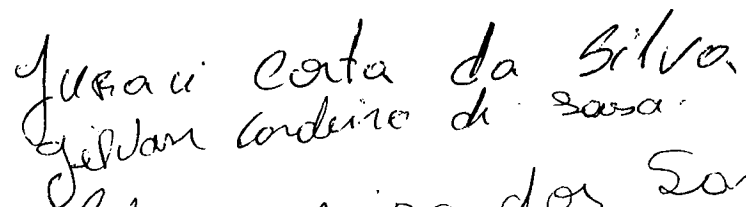 Juraci Costa da Silva
Gilvan Cordeiro de Sousa
dos